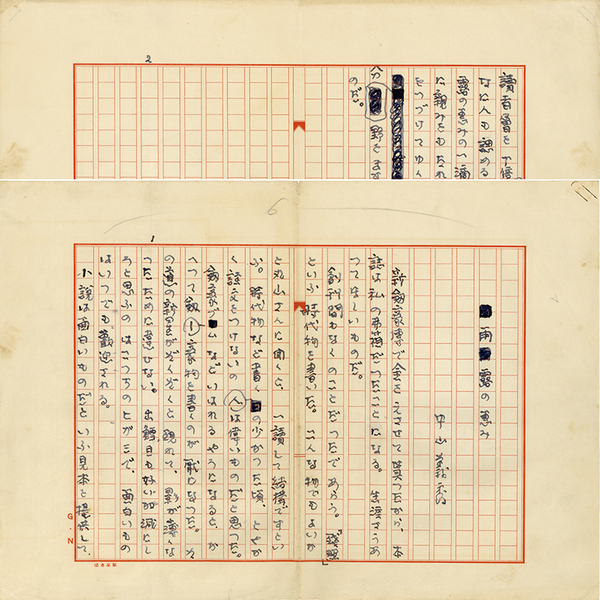 雨露の恵み
中山義秀
新剣豪傳で金をえさせて貰つたから、本
誌は私の米箱だつたことになる。生涯さうあ
つてほしいものだ。
創刊間もなくのことだつたであらう。「残照」
といふ時代物を書いた。こんな物でもよいか
と丸山さんに聞くと、一讀して結構ですとい
ふ。時代物など書く の少かつた頃、とやか
く註文をつけないの人は偉いものだと思つた。
剣豪ブームなどいはれるやうになると、か
へつて剣豪物を書くのが厭になつた。
の道の新星がぞくぞくと現れて、影が薄くな
つたために ない。出鱈目も好い加減にし
ろと思ふのはこつちのヒガミで、面白いもの
はいつでも歓迎される。
小説は面白いものだといふ見本を提供して、
1
6
G.N
讀者層を十倍
人も認める
露の恵みの一滴
た親みをもたれ
をつづけてゆく
分野をます
のだ。
2